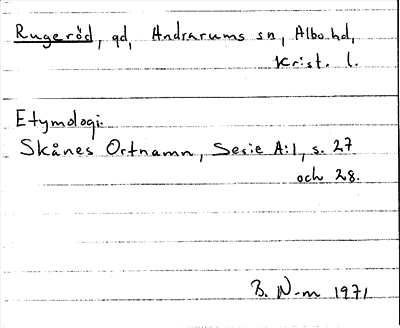 Rugeröd, gd, Andrarums sn, Albo hd,
Krist. l.
Etymologi:
Skånes Ortnamn, Serie A:1, s. 27
och 28.
B. N-m 1971